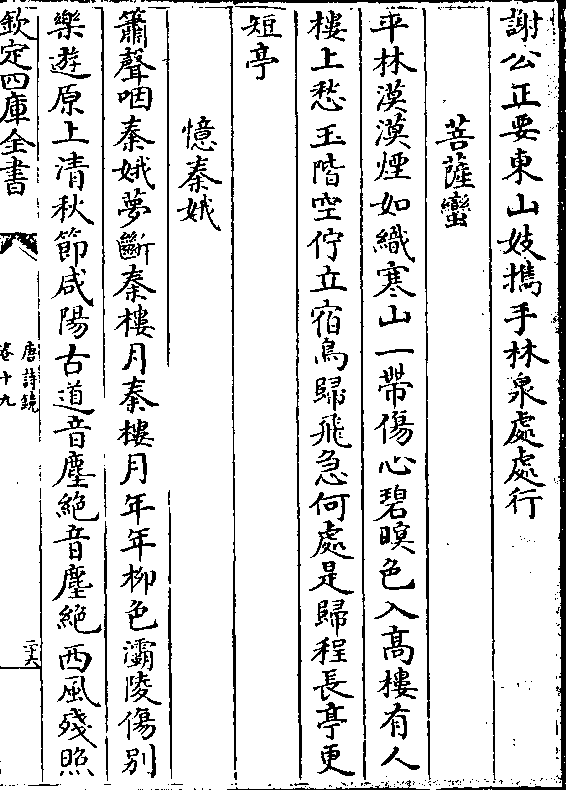 謝公正要東山妓擕手林泉處處行
菩薩蠻
平林漠漠煙如織寒山一帶傷心碧暝色入髙樓有人
樓上愁玉階空佇立宿鳥歸飛急何處是歸程長亭更
短亭
憶秦娥
簫聲咽秦娥夢斷秦樓月秦樓月年年栁色灞陵傷别
樂遊原上清秋節咸陽古道音塵絶音塵絶西風殘照
欽定四庫全書
唐詩鏡
卷十九
二六